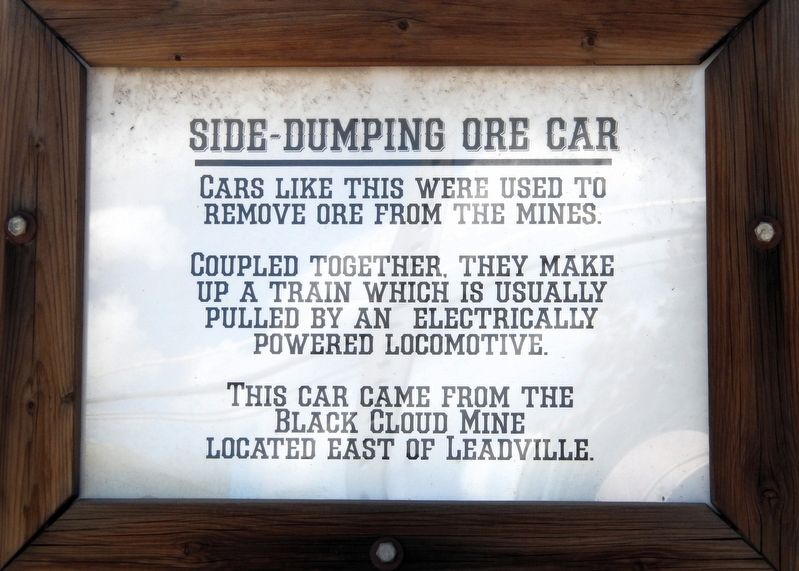 SIDE-DUMPING ORE CAR
CARS LIKE THIS WERE USED TO
REMOVE ORE FROM THE MINES.
COUPLED TOGETHER, THEY MAKE
UP A TRAIN WHICH IS USUALLY
PULLED BY AN ELECTRICALLY
POWERED LOCOMOTIVE.
THIS CAR CAME FROM THE
BLACK CLOUD MINE
LOCATED EAST OF LEADVILLE.